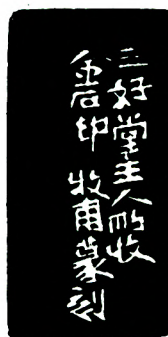 三好堂主人所收
印 牧甫篆刻